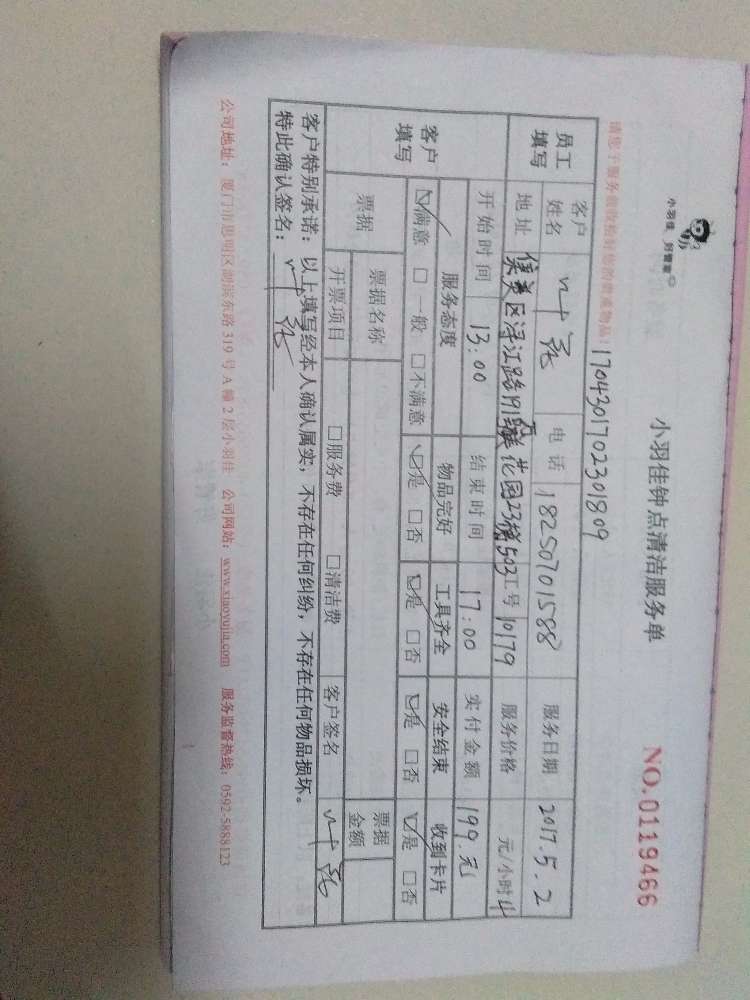 小羽佳 好管家
小羽佳钟点清洁服务单
NO.0119466
1704301702301809
请您于服务前收捡好您的贵重物品！
员工填写 客户姓名 叶 电话 18250701588 服务日期 2017.5.2
地址 集美区浔江路191号 花园23梯503 工号 10179 服务价格 元/小时 4
客户填写 开始时间 13:00 结束时间 17:00 实付金额 199.元
服务态度 物品完好 工具齐全 安全结束 收到卡片
☑满意 □一般 □不满意 ☑是 □否 ☑是 □否 ☑是 □否 ☑是 □否
票据 票据名称 票据金额
开票项目 □服务费 □清洁费 客户签名 叶
客户特别承诺：以上填写经本人确认属实，不存在任何纠纷，不存在任何物品损坏。
特此确认签名：叶
公司地址：厦门市思明区湖滨东路 319 号 A 幢 2 层小羽佳 公司网站：www.xiaoyujia.com 服务监督热线：0592-5888123